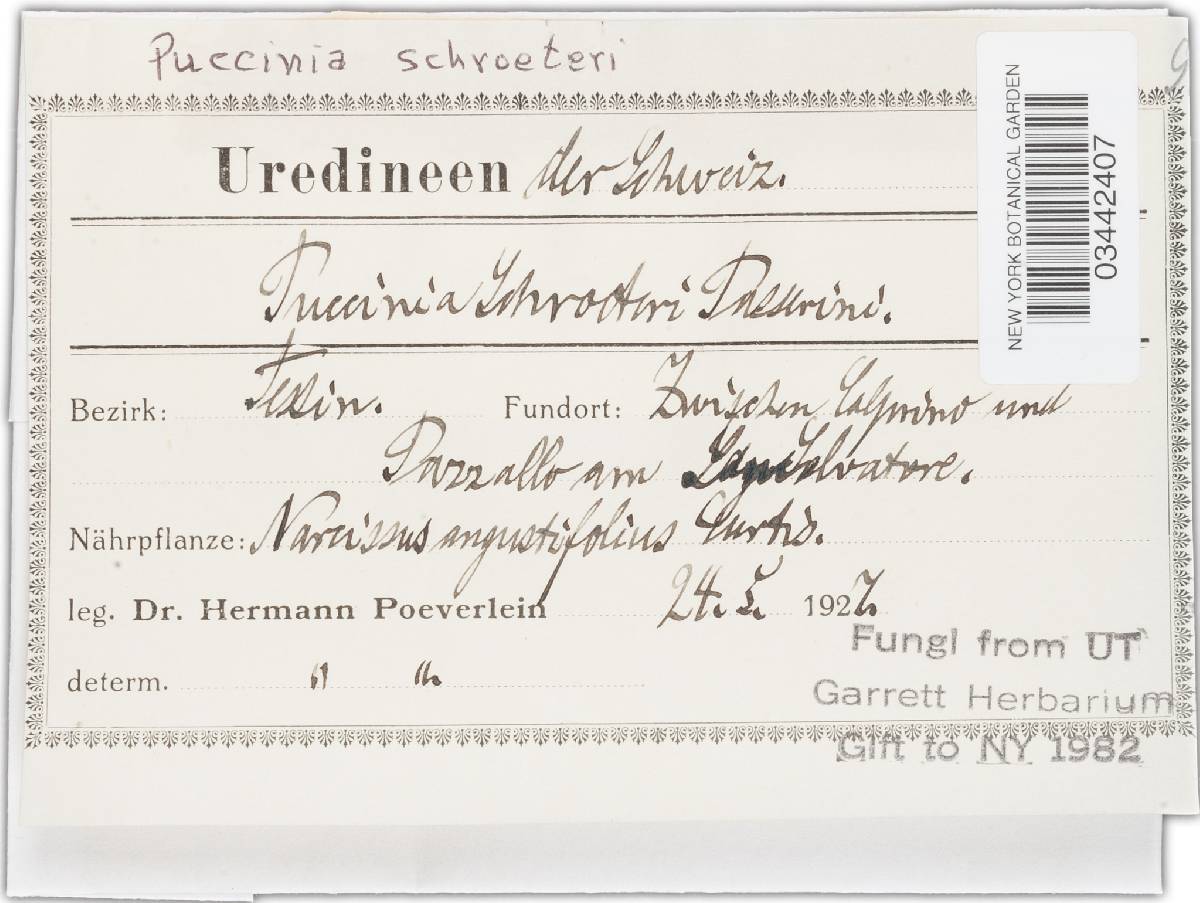 Puccinia schroeteri
Uredineen der Schweiz.
Puccinia Schroeteri Passerini.
Bezirk: Tessin. Fundort: Zwischen Calprino und
Pazzallo am Salvatore.
Nährpflanze: Narcissus angustifolius Curtis.
leg. Dr. Hermann Poeverlein 24. 5. 1927.
determ. " "
Fungi from UT
Garrett Herbarium
Gift to NY 1982
NEW YORK BOTANICAL GARDEN
03442407